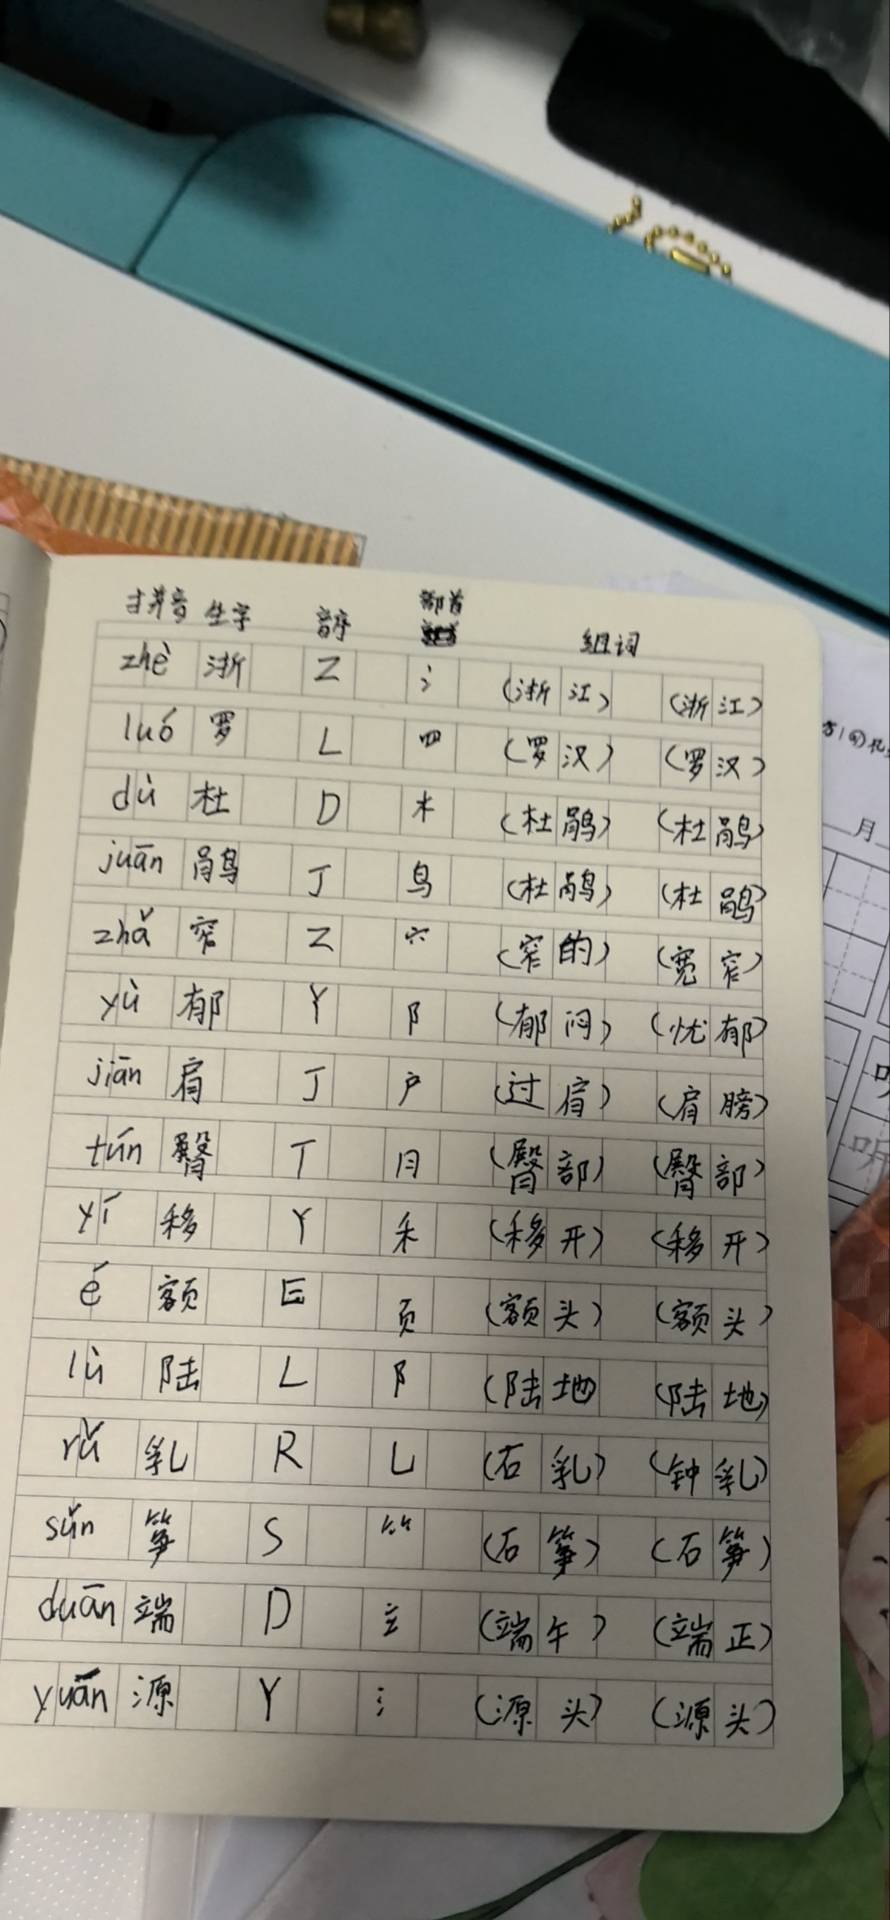 拼音 生字 音序 部首 组词
zhè 浙 Z 氵 (浙江) (浙江)
luó 罗 L 罒 (罗汉) (罗汉)
dù 杜 D 木 (杜鹃) (杜鹃)
juān 鹃 J 鸟 (杜鹃) (杜鹃)
zhǎ 窄 Z 穴 (窄的) (宽窄)
yù 郁 Y 阝 (郁闷) (忧郁)
jiān 肩 J 户 (过肩) (肩膀)
tún 臀 T 月 (臀部) (臀部)
yí 移 Y 禾 (移开) (移开)
é 额 E 页 (额头) (额头)
lù 陆 L 阝 (陆地) (陆地)
rǔ 乳 R 乚 (石乳) (钟乳)
sǔn 笋 S ⺮ (石笋) (石笋)
duān 端 D 立 (端午) (端正)
yuán 源 Y 氵 (源头) (源头)
月